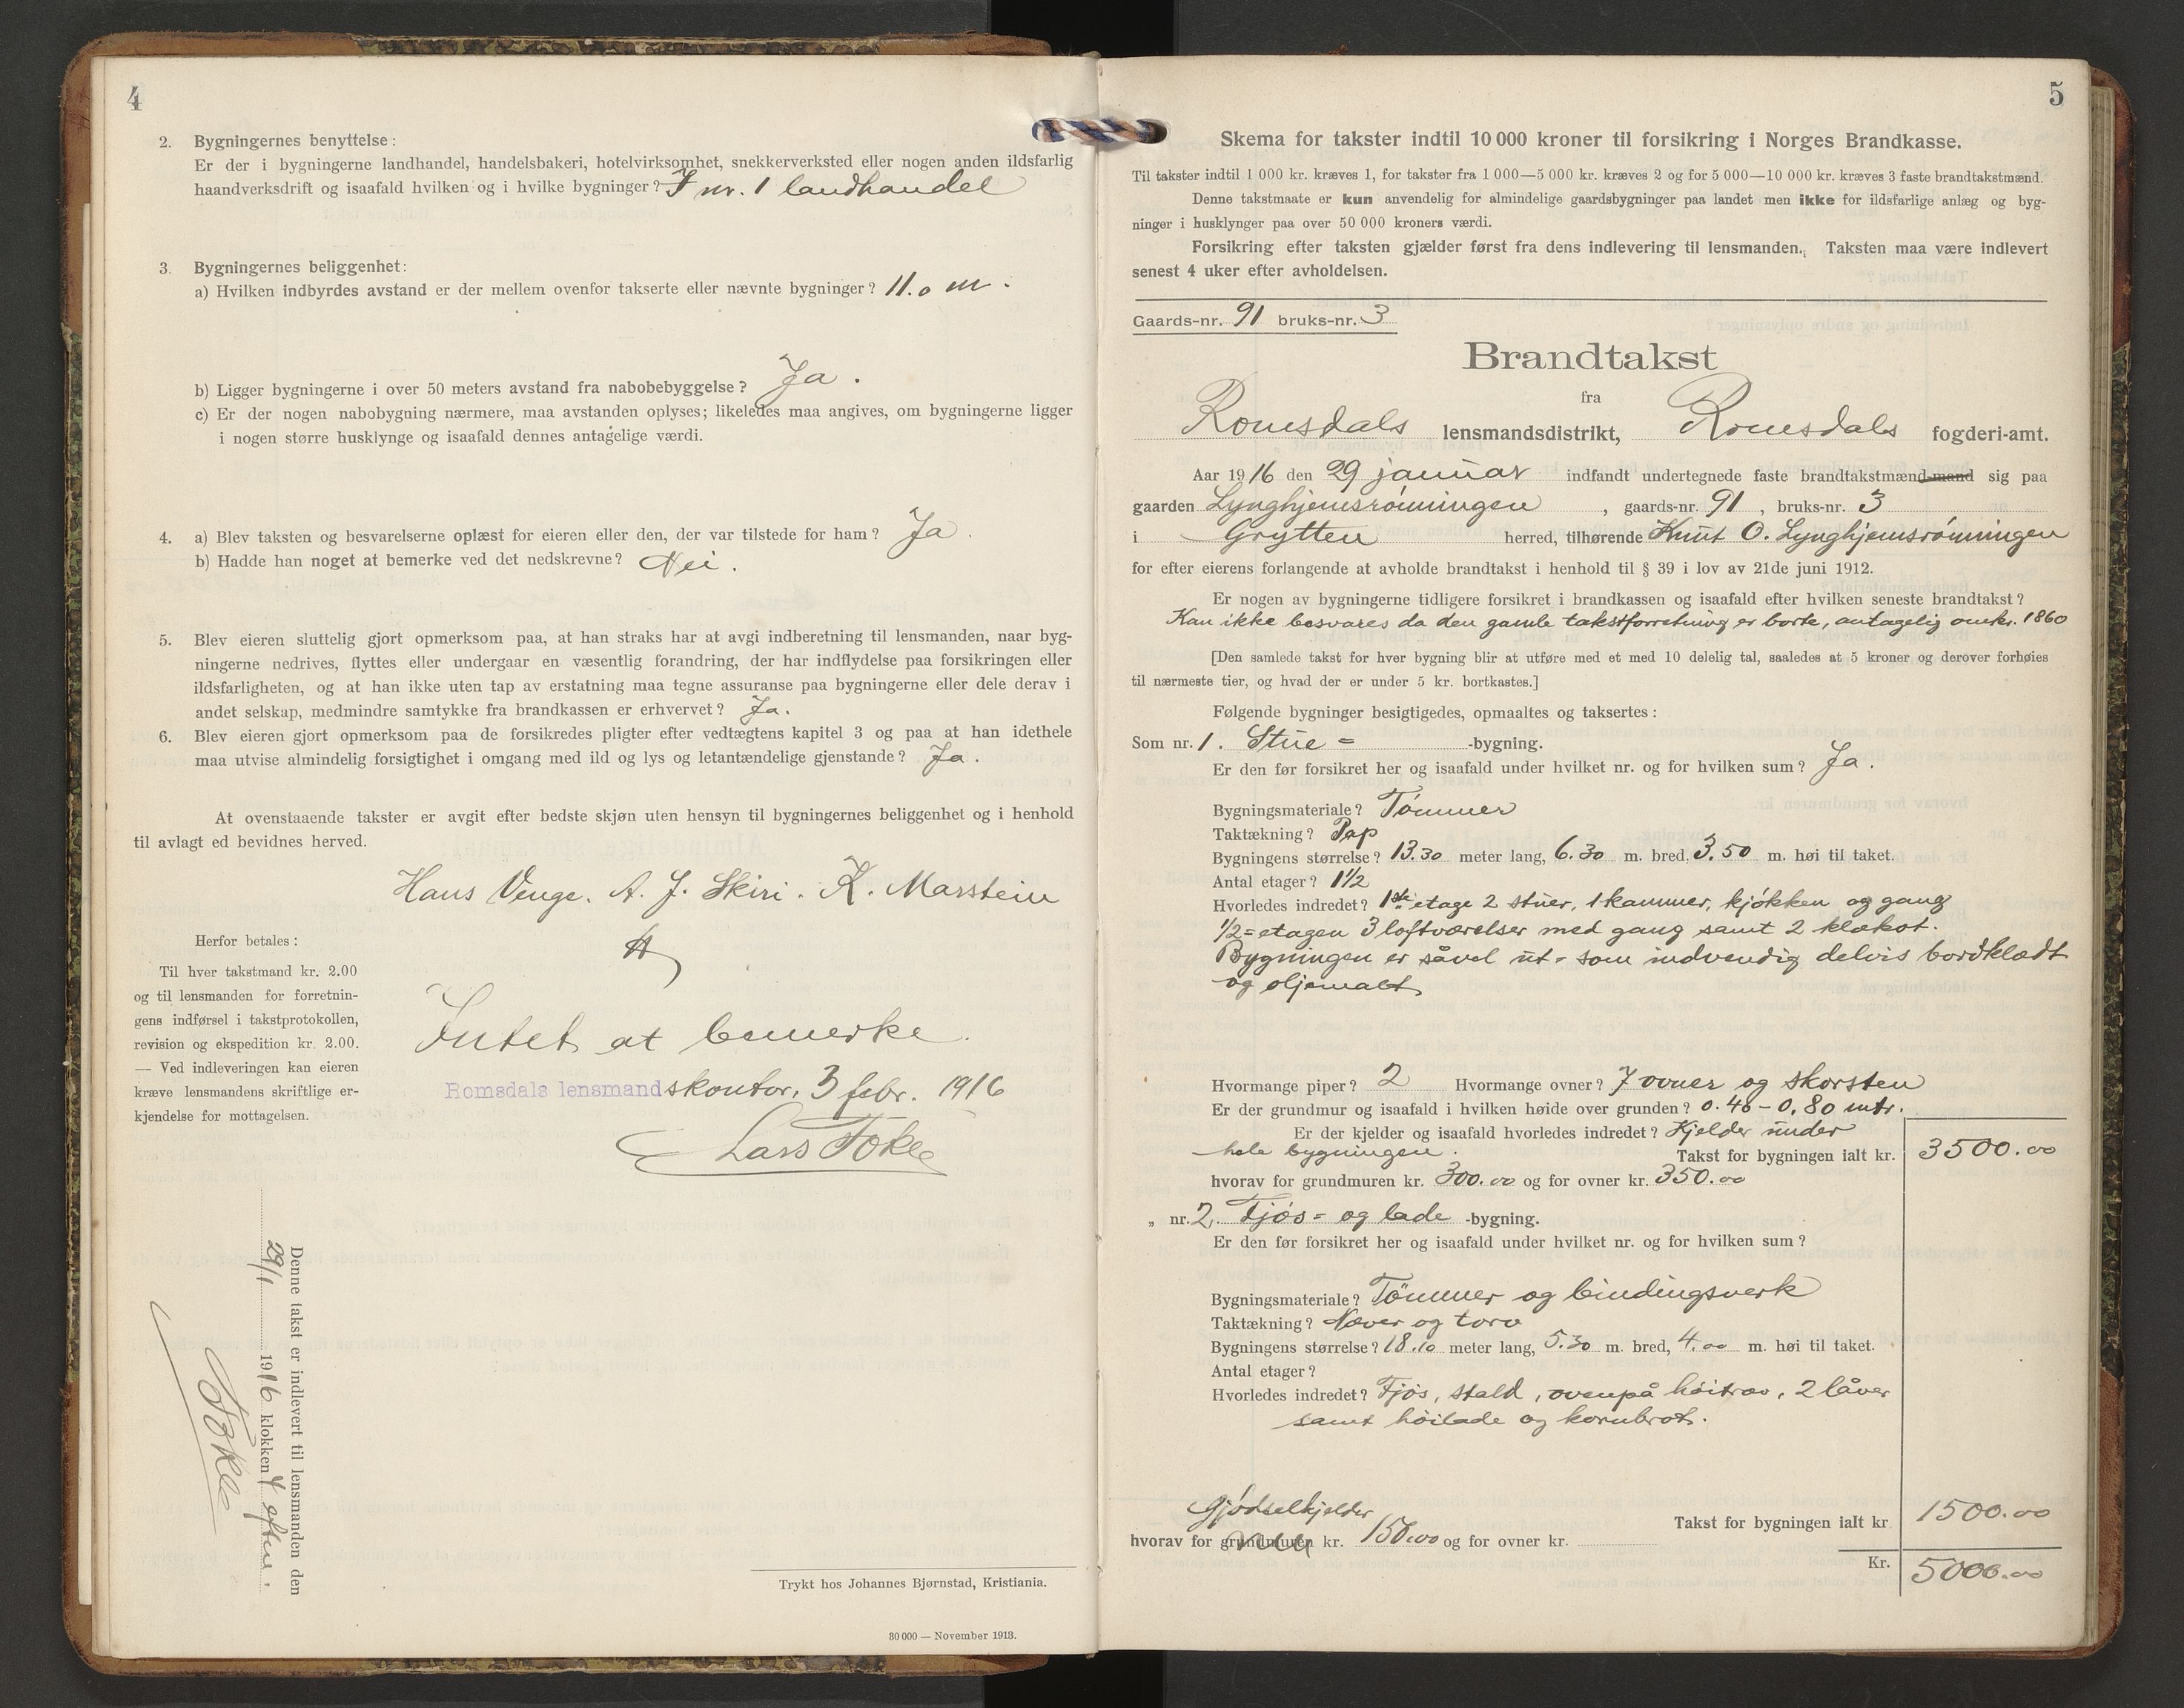 4
2. Bygningernes benyttelse:
Er der i bygningerne landhandel, handelsbakeri, hotelvirksomhet, snekkerverksted eller nogen anden ildsfarlig
haandverksdrift og isaafald hvilken og i hvilke bygninger? I nr. 1 landhandel
3. Bygningernes beliggenhet:
a) Hvilken indbyrdes avstand er der mellem ovenfor takserte eller nævnte bygninger? 11.0 m.
b) Ligger bygningerne i over 50 meters avstand fra nabobebyggelse? Ja.
c) Er der nogen nabobygning nærmere, maa avstanden oplyses; likeledes maa angives, om bygningerne ligger
i nogen større husklynge og isaafald dennes antagelige værdi.
4. a) Blev taksten og besvarelserne oplæst for eieren eller den, der var tilstede for ham? Ja.
b) Hadde han noget at bemerke ved det nedskrevne? Nei.
5. Blev eieren sluttelig gjort opmerksom paa, at han straks har at avgi indberetning til lensmanden, naar byg-
ningerne nedrives, flyttes eller undergaar en væsentlig forandring, der har indflydelse paa forsikringen eller
ildsfarligheten, og at han ikke uten tap av erstatning maa tegne assuranse paa bygningerne eller dele derav i
andet selskap, medmindre samtykke fra brandkassen er erhvervet? Ja.
6. Blev eieren gjort opmerksom paa de forsikredes pligter efter vedtægtens kapitel 3 og paa at han idethele
maa utvise almindelig forsigtighet i omgang med ild og lys og letantændelige gjenstande? Ja.
At ovenstaaende takster er avgit efter bedste skjøn uten hensyn til bygningernes beliggenhet og i henhold
til avlagt ed bevidnes herved.
Hans Venge. A. J. Skiri. K. Marstein
Herfor betales:
Til hver takstmand kr. 2.00
og til lensmanden for forretnin-
gens indførsel i takstprotokollen,
revision og ekspedition kr. 2.00.
— Ved indleveringen kan eieren
kræve lensmandens skriftlige er-
kjendelse for mottagelsen.
Intet at bemerke.
Romsdals lensmandskontor, 3 febr. 1916
Lars Tokle
Denne takst er indlevert til lensmanden den
29/1 1916 klokken 4 efterm.
Tokle
Trykt hos Johannes Bjørnstad, Kristiania.
30 000 — November 1913.
5
Skema for takster indtil 10 000 kroner til forsikring i Norges Brandkasse.
Til takster indtil 1 000 kr. kræves 1, for takster fra 1 000—5 000 kr. kræves 2 og for 5 000—10 000 kr. kræves 3 faste brandtakstmænd.
Denne takstmaate er kun anvendelig for almindelige gaardsbygninger paa landet men ikke for ildsfarlige anlæg og byg-
ninger i husklynger paa over 50 000 kroners værdi.
Forsikring efter taksten gjælder først fra dens indlevering til lensmanden. Taksten maa være indlevert
senest 4 uker efter avholdelsen.
Gaards-nr. 91 bruks-nr. 3
Brandtakst
fra
Romsdals lensmandsdistrikt, Romsdals fogderi-amt.
Aar 1916 den 29 januar indfandt undertegnede faste brandtakstmænd-mand sig paa
gaarden Lynghjemsrømningen, gaards-nr. 91, bruks-nr. 3
i Grytten herred, tilhørende Knut O. Lynghjemsrømningen
for efter eierens forlangende at avholde brandtakst i henhold til § 39 i lov av 21de juni 1912.
Er nogen av bygningerne tidligere forsikret i brandkassen og isaafald efter hvilken seneste brandtakst?
Kan ikke besvares da den gamle takstforretning er borte, antagelig omkr. 1860
[Den samlede takst for hver bygning blir at utføre med et med 10 delelig tal, saaledes at 5 kroner og derover forhøies
til nærmeste tier, og hvad der er under 5 kr. bortkastes.]
Følgende bygninger besigtigedes, opmaaltes og taksertes:
Som nr. 1. Stue = -bygning.
Er den før forsikret her og isaafald under hvilket nr. og for hvilken sum? Ja.
Bygningsmateriale? Tømmer
Taktækning? Pap
Bygningens størrelse? 13.30 meter lang, 6.30 m. bred. 3.50 m. høi til taket.
Antal etager? 1½
Hvorledes indredet? 1ste etage 2 stuer, 1 kammer, kjøkken og gang
1/2= etagen 3 loftværelser med gang samt 2 klækot.
Bygningen er såvel ut= som indvendig delvis bordklædt
og oljemalt
Hvormange piper? 2 Hvormange ovner? 7 ovner og skorsten
Er der grundmur og isaafald i hvilken høide over grunden? 0.40 – 0.80 mtr.
Er der kjelder og isaafald hvorledes indredet? Kjelder under
hele bygningen. Takst for bygningen ialt kr. 3500.00
hvorav for grundmuren kr. 300.00 og for ovner kr. 350.00
„ nr. 2. Fjøs= og lade -bygning.
Er den før forsikret her og isaafald under hvilket nr. og for hvilken sum?
Bygningsmateriale? Tömmer og bindingsverk
Taktækning? Næver og torv
Bygningens størrelse? 18.10 meter lang, 5.30 m. bred, 4.00 m. høi til taket.
Antal etager?
Hvorledes indredet? Fjøs, stald, ovenpå höitrev, 2 låver
samt höilade og kornbrot.
Gjødselkjelder
Takst for bygningen ialt kr 1500.00
hvorav for grundmuren kr. 150.00 og for ovner kr.
Kr. 5000.00